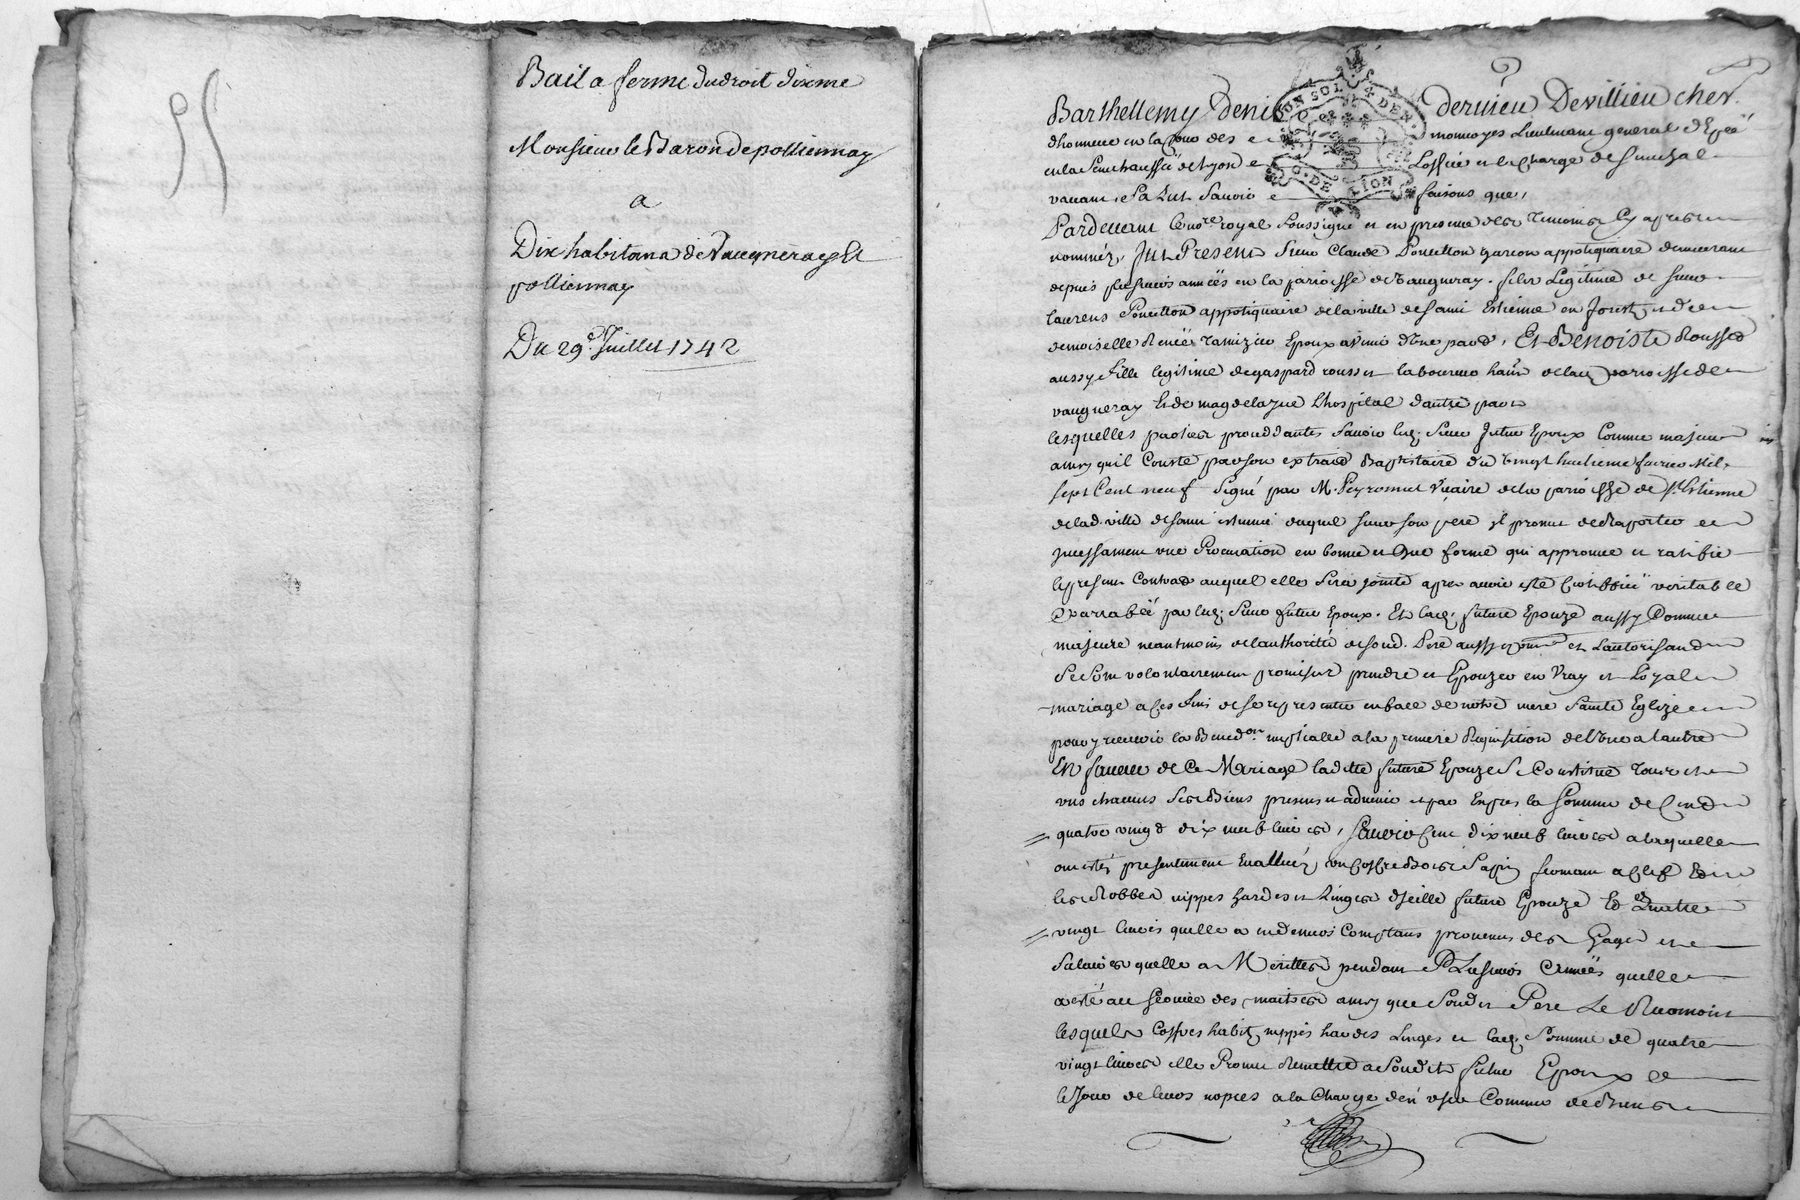 Bail a ferme du droit dixme
Monsieur le Baron de pollionnay
a
Dix habitans de Vaugneray Et
pollionnay
Du 29e. Juillet 1742
Barthellemy Denis derieu Devillieu cher.
dhonneur en la Cour des monnoyes Lieutenant general dEpée
en la Senechaussée de Lyon Loffice et la Charge de Senechal
vacant, Salut Savoir faisons que,
Pardevant le nore. royal soussigné et en presence des temoins Cy apres
nommés, fut Present Sieur Claude Poncillon garcon appotiquaire demeurant
depuis plusieurs années en la parroisse de Vaugneray, fils Legitime de sieur
laurens Poncillon appotiquaire de la ville de saint Estienne en forest et de
demoiselle Renée Epoux a vivre d'Une part, Et Benoiste Rousset
aussy fille legitime de gaspard rousset laboureur hant. de lad. parroisse de
vaugneray Et de magdelayne Lhospital dautre part
lesquelles parties proceddantes Savoir led. Sieur futur Epoux Comme majeur
ainsy quil Conste par son extrait Baptistaire du vingt huitieme fevrier Mil
sept Cent neuf Signé par M. Peyronnet Vicaire de la parroisse de St. Estienne
de lad. ville de saint estienne duquel sieur son pere il promet de Raporter
incessament une Procuration en bonne et due forme qui approuve et ratifie
le present Contrat auquel elle sera jointe apres avoir esté Certiffiée veritable
Et parraphée par led. Sieur futur Epoux. Et lad. future Epouze aussy Comme
majeure neantmoins de lauthorité de sond. Pere aussy et Lautorisand
Se sont volontairement promis prendre et Epouzer en Vray et Loyal
mariage a Ces fins de se representer en face de notre mere Sainte Eglize
pour y recevoir la Bened.on nuptialle a la premiere Requisition de lUne a lautre
En faveur de Ce Mariage laditte future Epouze Se Constitue tous et
uns chacuns Ses Biens presens et advenir et par Expres la Somme de Cend
quatre vingt dix neuf livres, Savoir Cent dix neuf livres a laquelle
ont estés presentement Evallués un Coffre Bois Sapin fermant a Clef
les Robbes nippes hardes et Linges dicelle future Epouze Et Quatre
vingt livres quelle a en deniers Comptans provenus des Gages et
Salaires quelle a Merittés pendant Plusieurs Années quelle
a esté au Service des maitres ainsy que Sondit Pere Le Reconnoit
lesquels Coffres habits nippes hardes Linges et lad. Somme de quatre
vingt livres elle Promet Remettre a Sondit futur Epoux
le Jour de leurs nopces a la Charge den user Comme de Biens